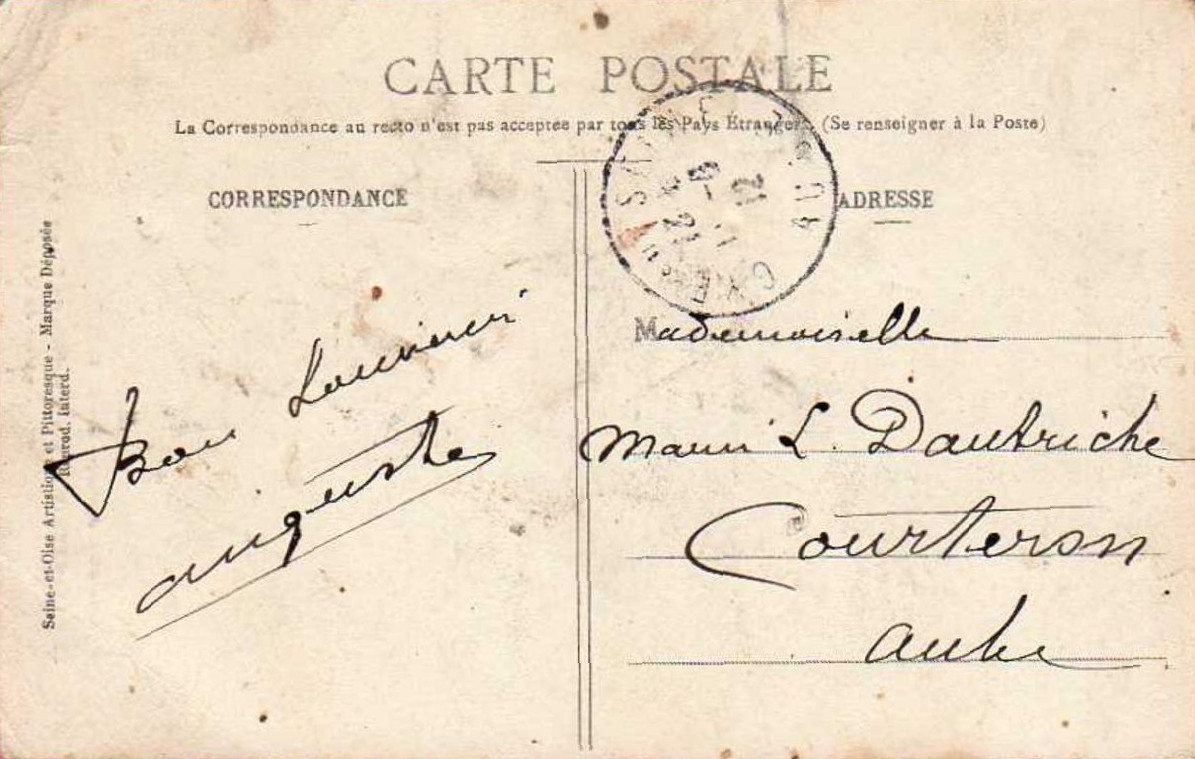 CARTE POSTALE
La Correspondance au recto n'est pas acceptée par tous les Pays Étrangers. (Se renseigner à la Poste)
CORRESPONDANCE
Seine-et-Oise Artistique et Pittoresque - Marque Déposée
Reprod. Interd.
Bon Souvenir
auguste
ADRESSE
Mademoiselle
L. Dautriche
Courteron
Aube